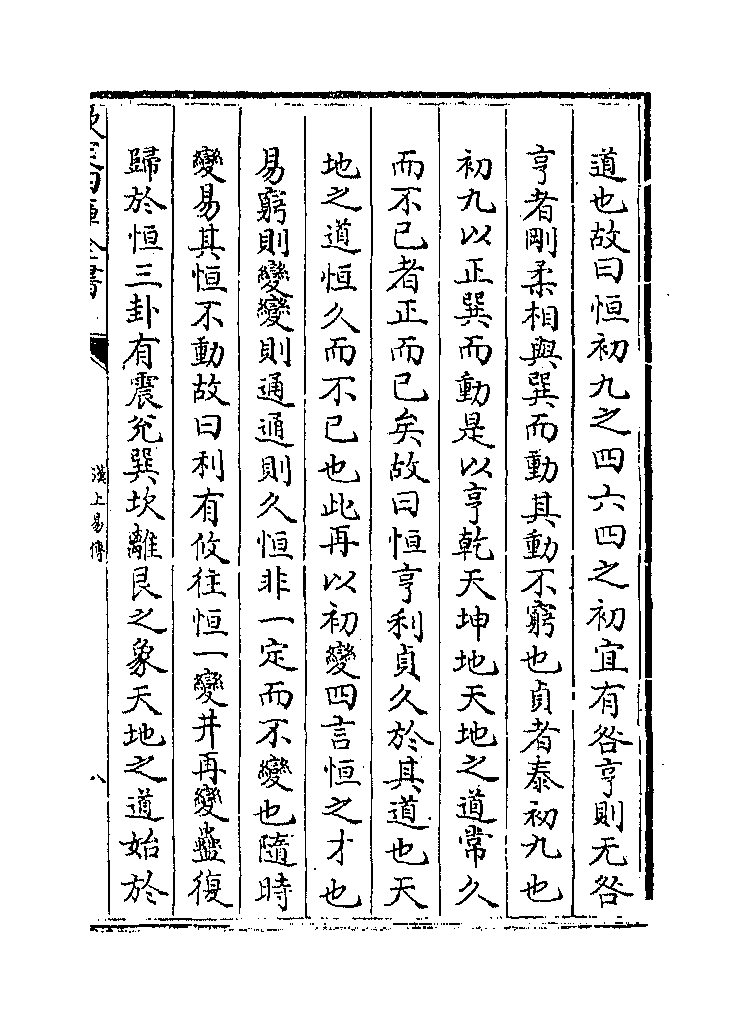 道也故曰恒初九之四六四之初宜有咎亨則无咎
亨者剛柔相與巽而動其動不窮也貞者泰初九也
初九以正巽而動是以亨乾天坤地天地之道常久
而不已者正而已矣故曰恒亨利貞久於其道也天
地之道恒久而不已也此再以初變四言恒之才也
易窮則變變則通通則久恒非一定而不變也隨時
變易其恒不動故曰利有攸往恒一變井再變蠱復
歸於恒三卦有震兊巽坎離艮之象天地之道始於
欽定四庫全書
漢上易傳
八